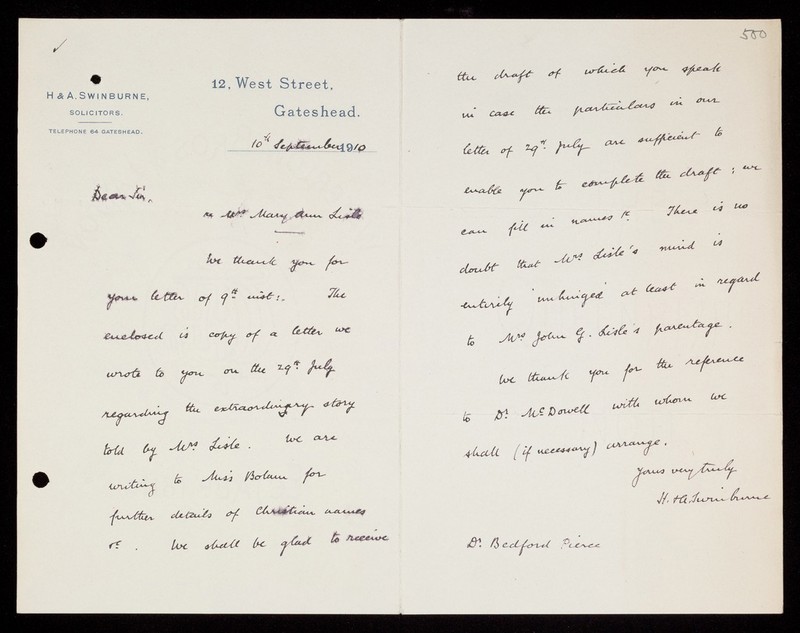 H & A. SWINBURNE,
SOLICITORS.
TELEPHONE 64 GATESHEAD.
12, West Street,
Gateshead.
10th September 1910
Dear Sir,
re Mrs Mary Ann Lisle
We thank you for
your letter of 9th inst:. The
enclosed is copy of a letter we
wrote to you on the 29th July
regarding the extraordinary story
told by Mrs Lisle. We are
writing to Miss Bolam for
further details of Christian names
&c. We shall be glad to receive
500
the draft of which you speak
in case the particulars in our
letter of 29th July are sufficient to
enable you to complete the draft; we
can fill in names &c. There is no
doubt that Mrs Lisle's mind is
entirely 'unhinged' at least in regard
to Mrs John G. Lisle's parentage.
We thank you for the reference
to Dr McDowell with whom we
shall (if necessary) arrange.
Yours very truly
H. & A. Swinburne
Dr Bedford Pierce